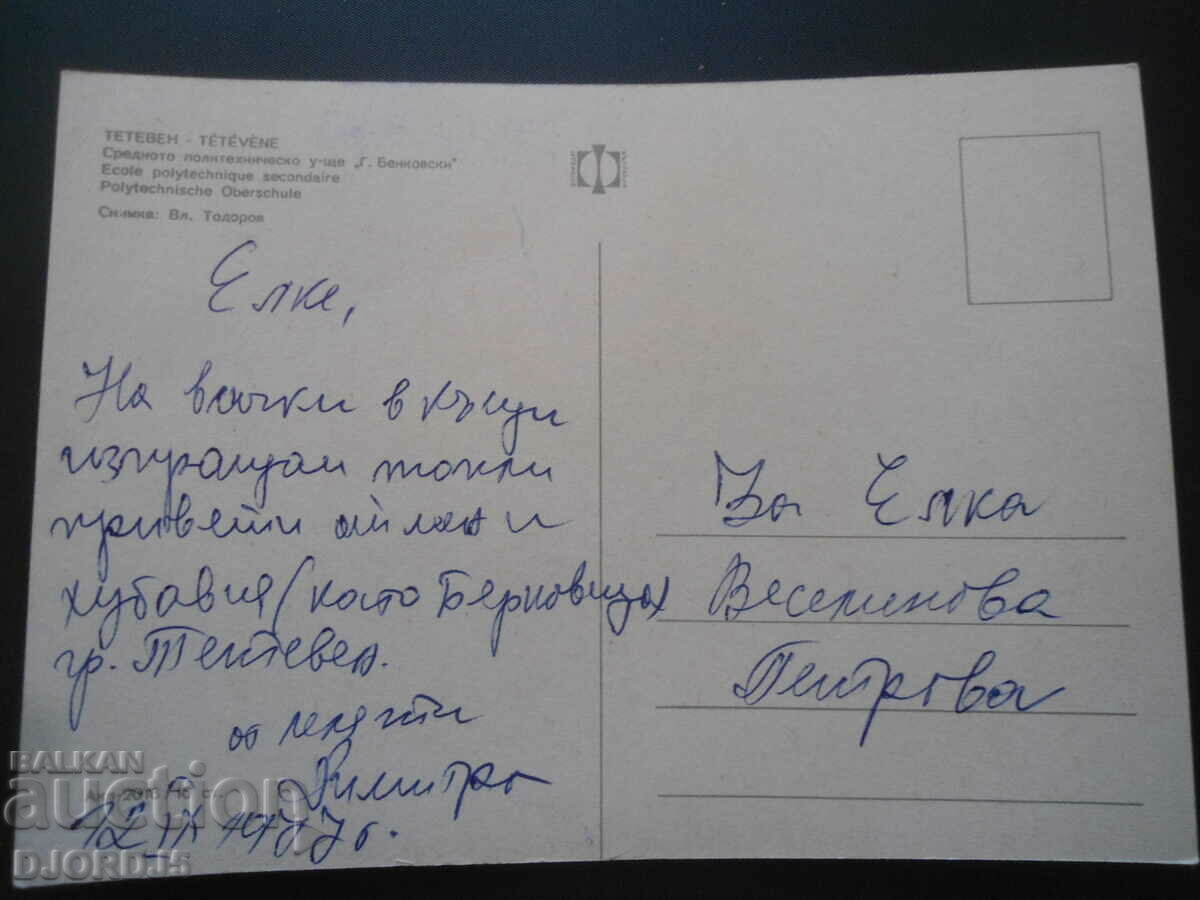 ТЕТЕВЕН - TÉTÉVÈNE
Средното политехническо у-ще „Г. Бенковски"
Ecole polytechnique secondaire
Polytechnische Oberschule
Снимка: Вл. Тодоров
Елке,
На всички в къщи
изпращам топли
привети от
хубавия (като Берковица)
гр. Тетевен.
от
Димитър
12 IX 1977 г.
За Елка
Веселинова
Петрова
BALKAN
auction
DJORDJ5